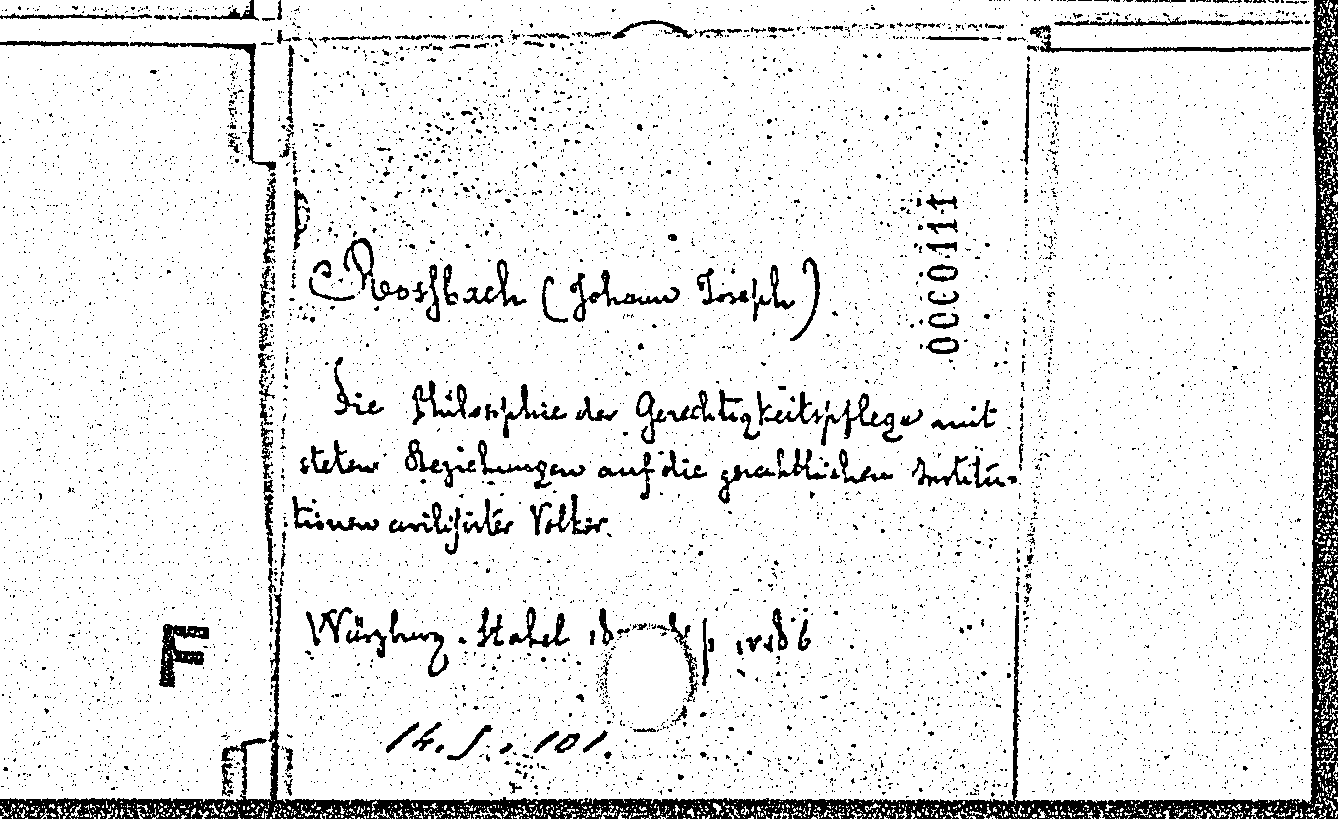 Rossbach (Johann Joseph).
Die Philosophie der Gerechtigkeitspflege mit
steten Beziehungen auf die gerichtlichen Institu-
tionen civilisirter Völker.
Würzburg. Stahel
14. J. 101.
0000111
F